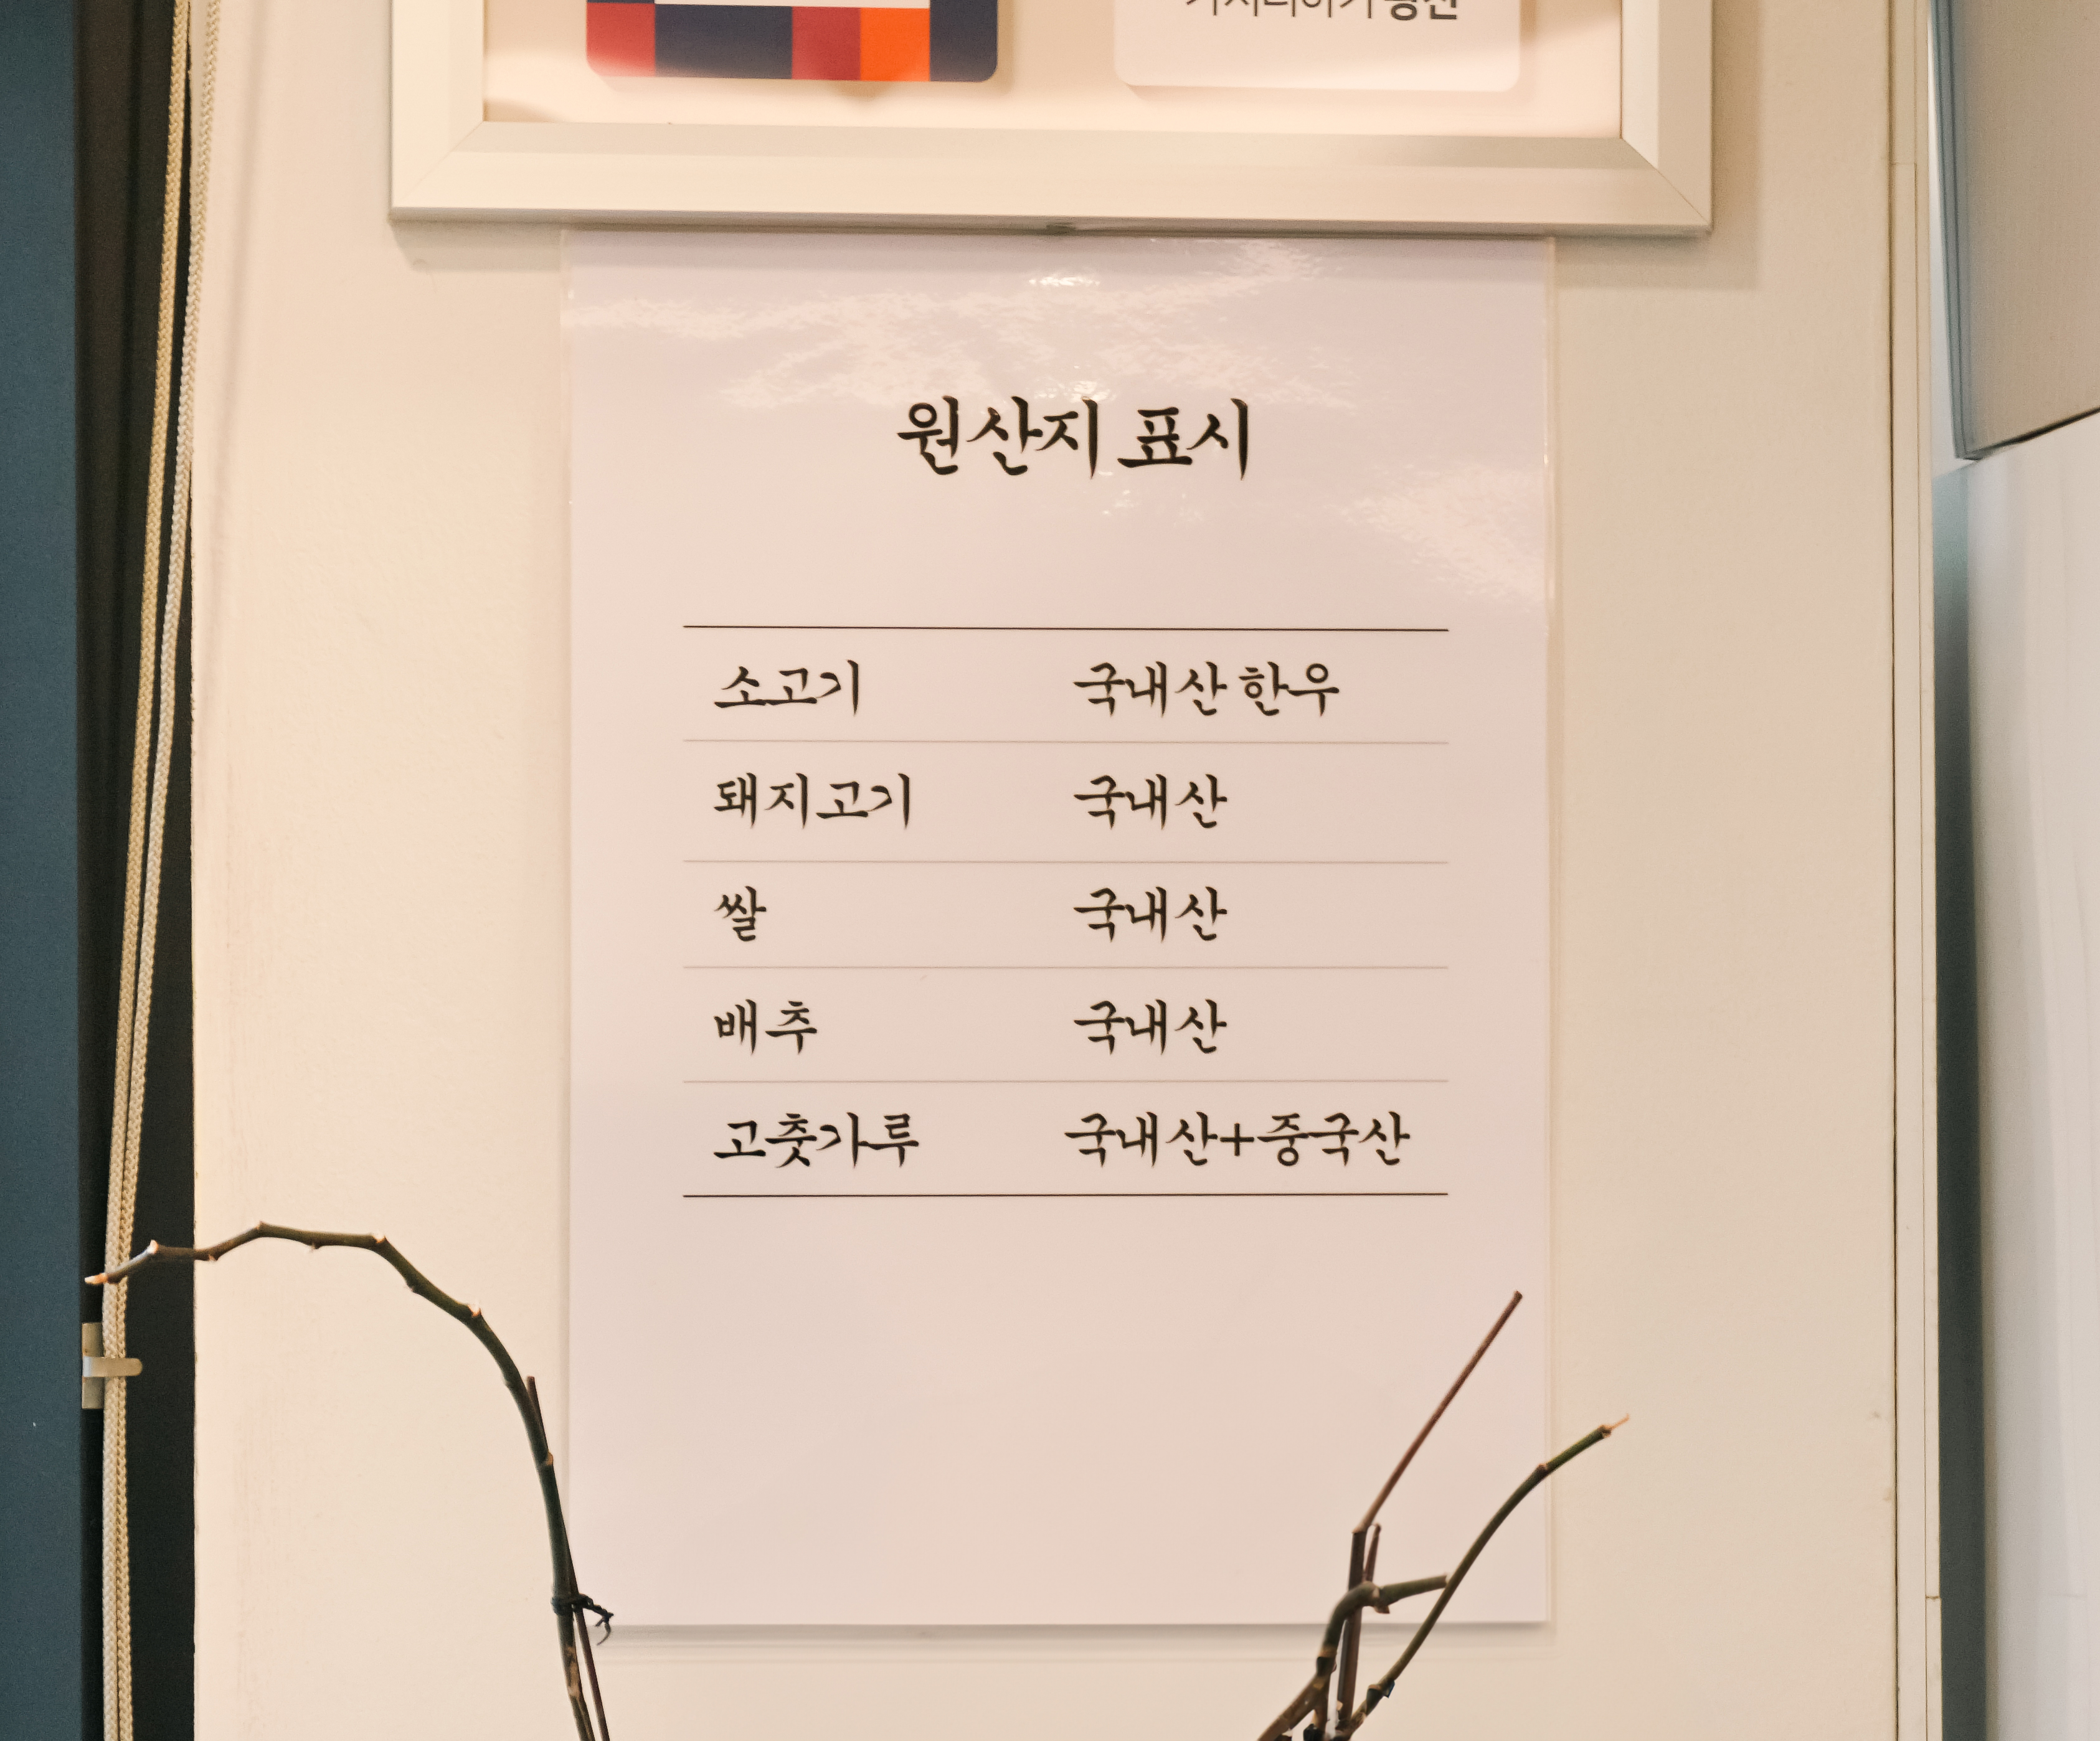 원산지 표시
소고기 국내산 한우
돼지고기 국내산
쌀 국내산
배추 국내산
고춧가루 국내산+중국산